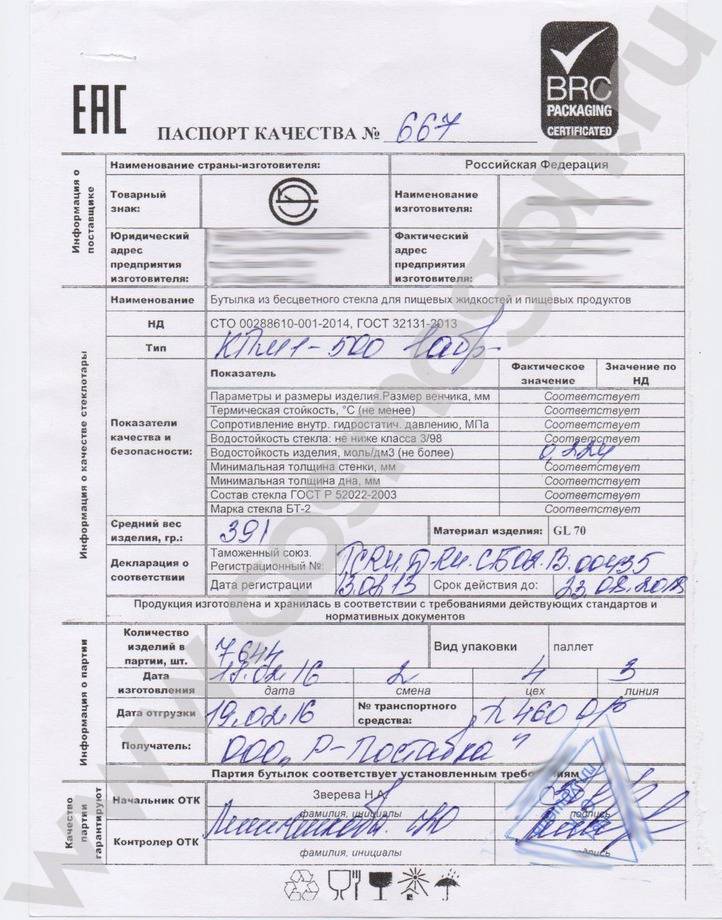 EAC
BRC
PACKAGING
CERTIFICATED
ПАСПОРТ КАЧЕСТВА № 667
Информация о поставщике
Наименование страны-изготовителя: Российская Федерация
Товарный знак:
Наименование изготовителя:
Юридический адрес предприятия изготовителя:
Фактический адрес предприятия изготовителя:
Информация о качестве стеклотары
Наименование Бутылка из бесцветного стекла для пищевых жидкостей и пищевых продуктов
НД СТО 00288610-001-2014, ГОСТ 32131-2013
Тип КПМ1-500
Показатели качества и безопасности:
Показатель Фактическое значение Значение по НД
Параметры и размеры изделия.Размер венчика, мм Соответствует
Термическая стойкость, °С (не менее) Соответствует
Сопротивление внутр. гидростатич. давлению, МПа Соответствует
Водостойкость стекла: не ниже класса 3/98 Соответствует
Водостойкость изделия, моль/дм3 (не более) 0,224
Минимальная толщина стенки, мм Соответствует
Минимальная толщина дна, мм Соответствует
Состав стекла ГОСТ Р 52022-2003 Соответствует
Марка стекла БТ-2 Соответствует
Средний вес изделия, гр.: 391 Материал изделия: GL 70
Декларация о соответствии
Таможенный союз.
Регистрационный №: ТСRU.Д-RU.СБ02.В.00435
Дата регистрации 13.02.13 Срок действия до: 23.02.2018
Продукция изготовлена и хранилась в соответствии с требованиями действующих стандартов и
нормативных документов
Информация о партии
Количество изделий в партии, шт. 7644 Вид упаковки паллет
Дата изготовления 17.02.16 2 4 3
дата смена цех линия
Дата отгрузки 19.02.16 № транспортного средства: 460
Получатель: ООО „Р-Поставка"
Партия бутылок соответствует установленным требованиям
Качество партии гарантируют
Начальник ОТК Зверева Н.А.
фамилия, инициалы подпись
Контролер ОТК
фамилия, инициалы подпись
www.cosmogon.ru